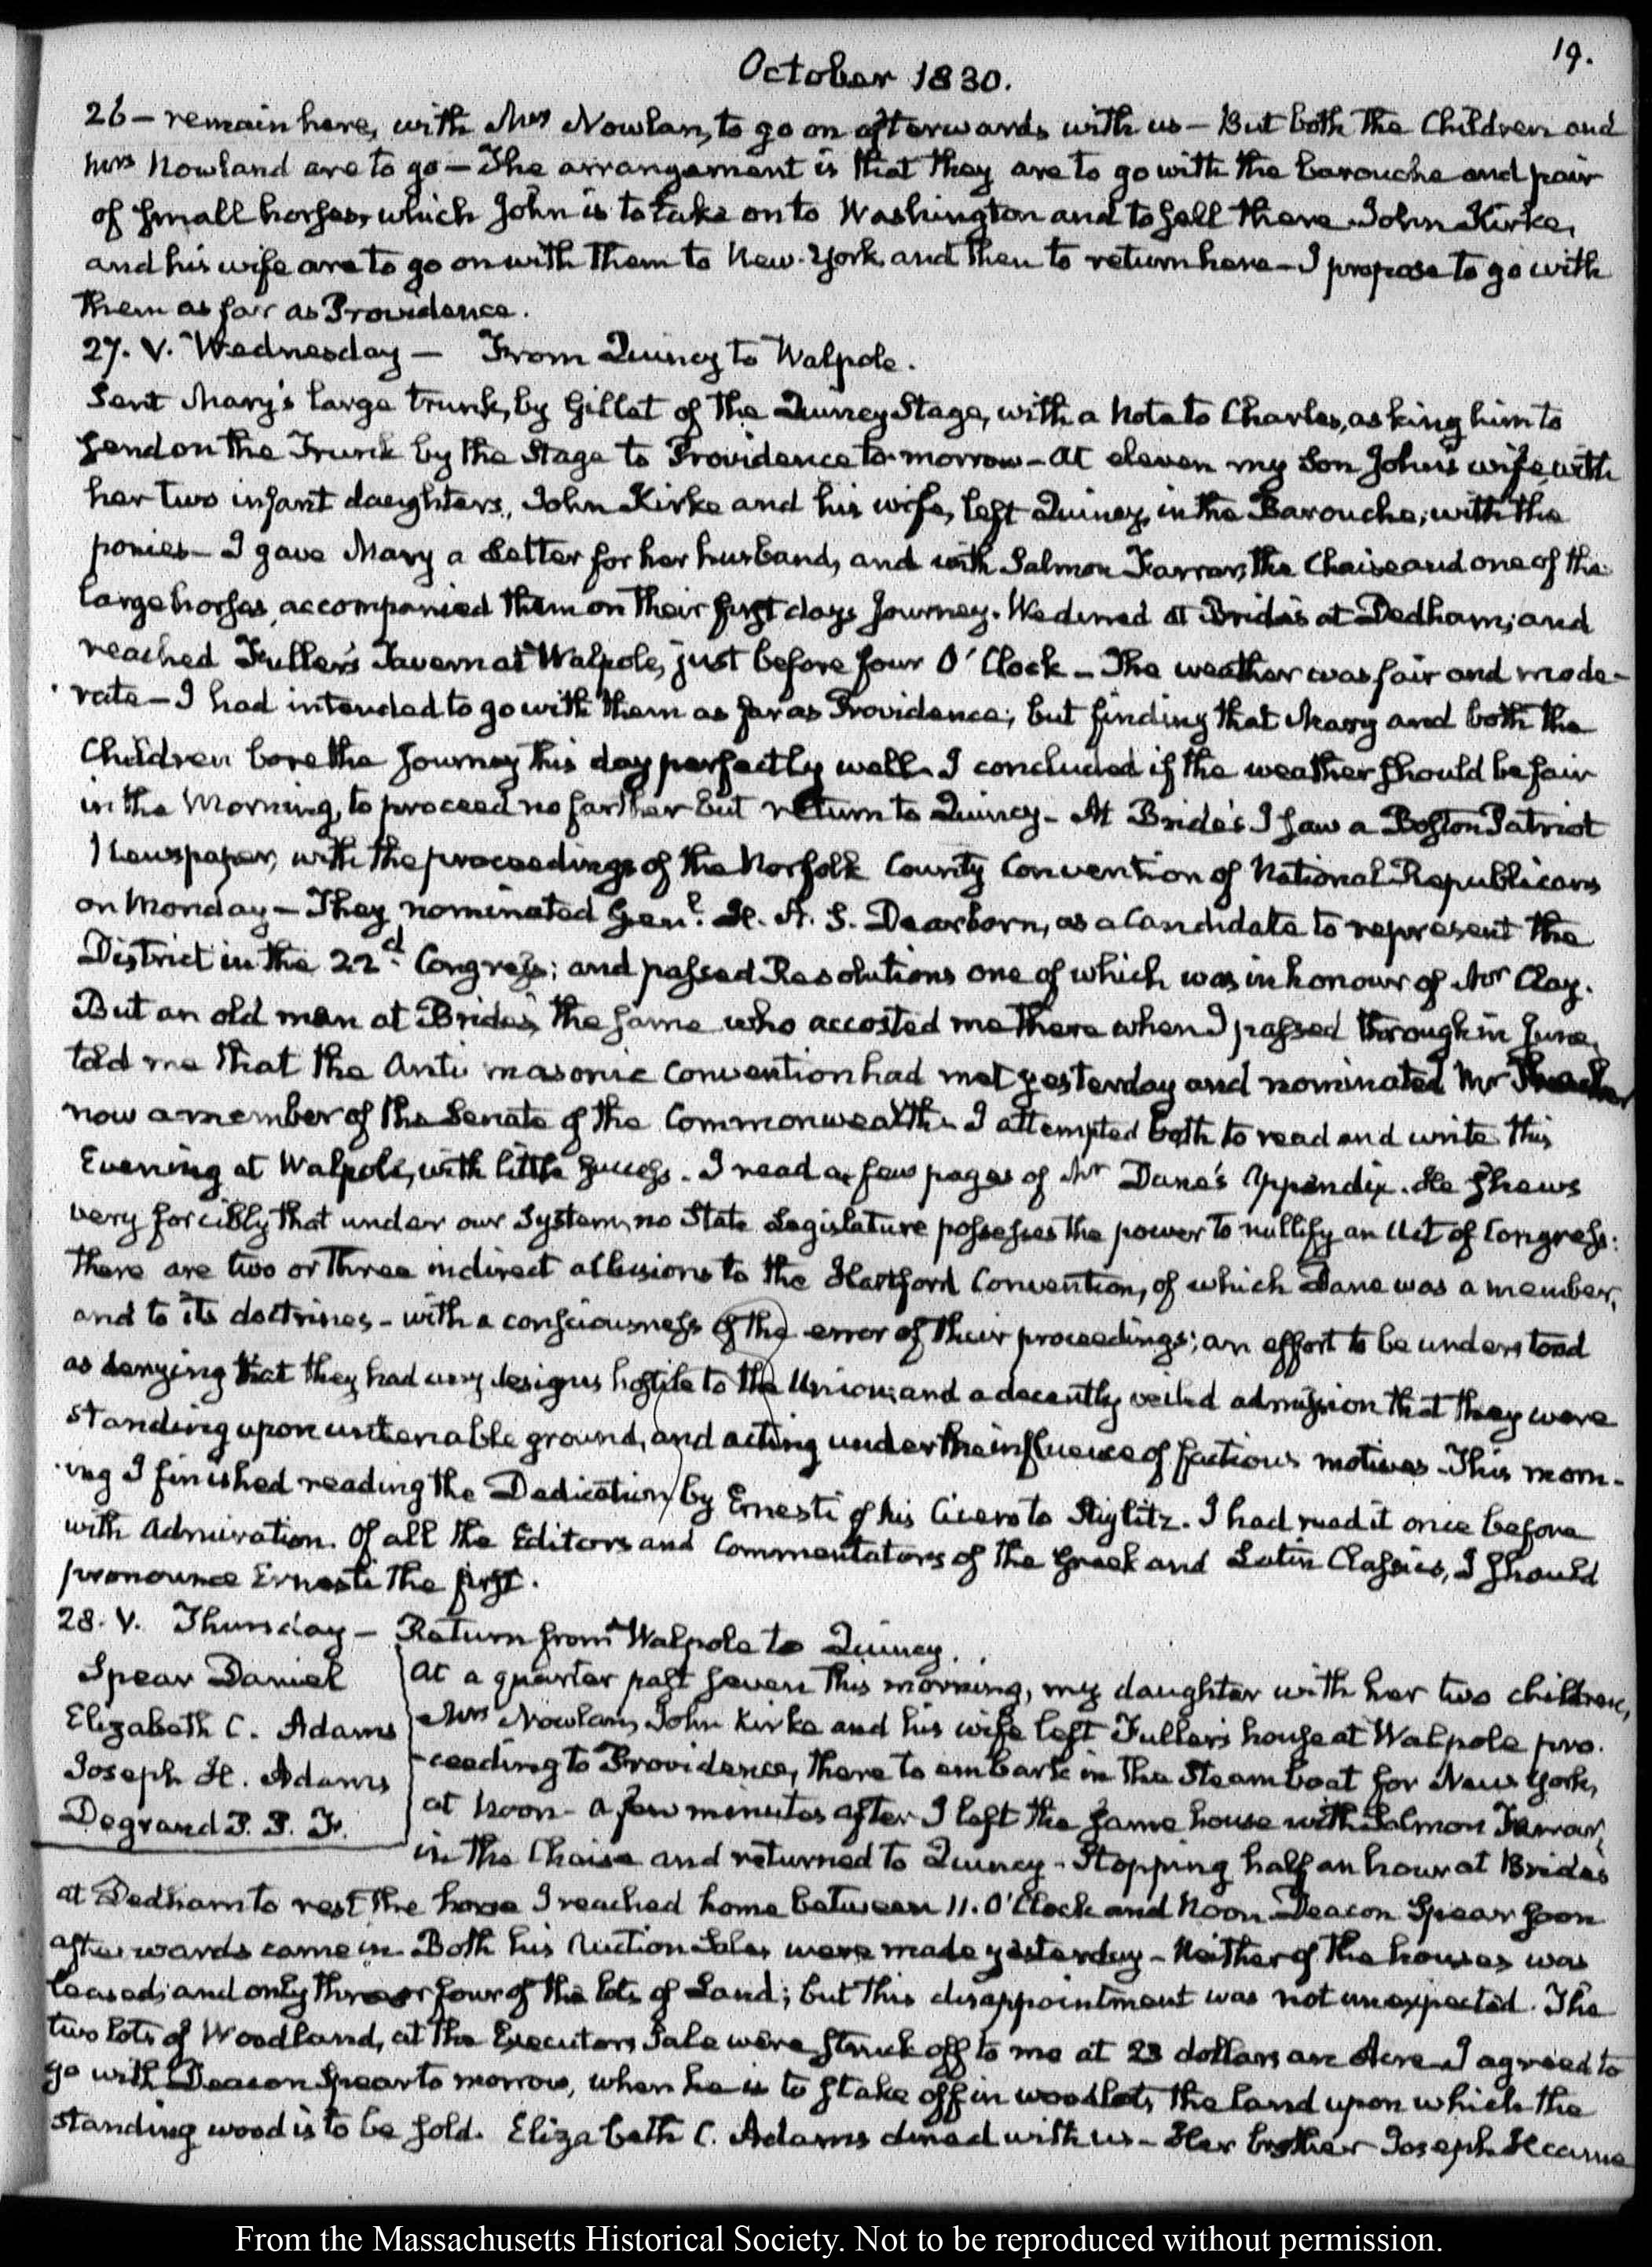 19.
October 1830.
26 — remain here, with Mrs Nowlan, to go on afterwards with us — But both the Children and
Mrs Nowland are to go — The arrangement is that they are to go with the barouche and pair
of small horses, which John is to take on to Washington and to sell there. John Kirke,
and his wife are to go on with them to New-York, and then to return here — I propose to go with
them as far as Providence.
27. V. Wednesday — From Quincy to Walpole.
Sent Mary's large trunk, by Gillet of the Quincy Stage, with a Note to Charles, asking him to
send on the Trunk by the Stage to Providence to-morrow — At eleven my Son John's wife, with
her two infant daughters, John Kirke and his wife, left Quincy, in the Barouche, with the
ponies — I gave Mary a Letter for her husband, and with Salmon Farrar, the Chaise and one of the
large horses, accompanied them on their first days Journey. We dined at Bride's at Dedham; and
reached Fuller's Tavern at Walpole, just before four O'Clock — The weather was fair and mode-
rate — I had intended to go with them as far as Providence; but finding that Mary and both the
Children bore the Journey this day perfectly well I concluded if the weather should be fair
in the Morning, to proceed no farther but return to Quincy — At Bride's I saw a Boston Patriot
Newspaper, with the proceedings of the Norfolk County Convention of National Republicans
on Monday — They nominated Genl. H. A. S. Dearborn, as a Candidate to represent the
District in the 22d Congress; and passed Resolutions one of which was in honour of Mr Clay.
But an old man at Bride's, the same who accosted me there when I passed through in June,
told me that the Anti masonic Convention had met yesterday and nominated Mr
now a member of the Senate of the Commonwealth — I attempted both to read and write this
Evening at Walpole, with little success. I read a few pages of Mr Dane's Appendix. He shews
very forcibly that under our System, no State Legislature possesses the power to nullify an Act of Congress:
there are two or three indirect allusions to the Hartford Convention, of which Dane was a member,
and to its doctrines — with a consciousness of the error of their proceedings; an effort to be understood
as denying that they had any designs hostile to the Union; and a decently veiled admission that they were
standing upon untenable ground, and acting under the influence of factious motives — This morn-
ing I finished reading the Dedication by Ernesti of his Cicero to Stiglitz. I had read it once before
with Admiration. Of all the Editors and Commentators of the Greek and Latin Classics, I should
pronounce Ernesti the first.
28. V. Thursday — Return from Walpole to Quincy.
Spear Daniel
Elizabeth C. Adams
Joseph H. Adams
Degrand P. P. F.
At a quarter past seven this morning, my daughter with her two children,
Mrs Nowlan, John Kirke and his wife left Fuller's house at Walpole pro-
ceeding to Providence, there to embark in the Steamboat for New York,
at Noon — a few minutes after I left the same house with Salmon Farrar,
in the Chaise and returned to Quincy — Stopping half an hour at Brides
at Dedham to rest the horse I reached home between 11. O'Clock and Noon. Deacon Spear soon
afterwards came in. Both his Auction Sales were made yesterday — Neither of the houses was
leased; and only three or four of the lots of Land; but this disappointment was not unexpected. The
two lots of Woodland, at the Executors Sale were struck off to me at 23 dollars an Acre. I agreed to
go with Deacon Spear to morrow, when he is to stake off in woodlots, the land upon which the
standing wood is to be sold. Elizabeth C. Adams dined with us — Her brother Joseph H came
From the Massachusetts Historical Society. Not to be reproduced without permission.